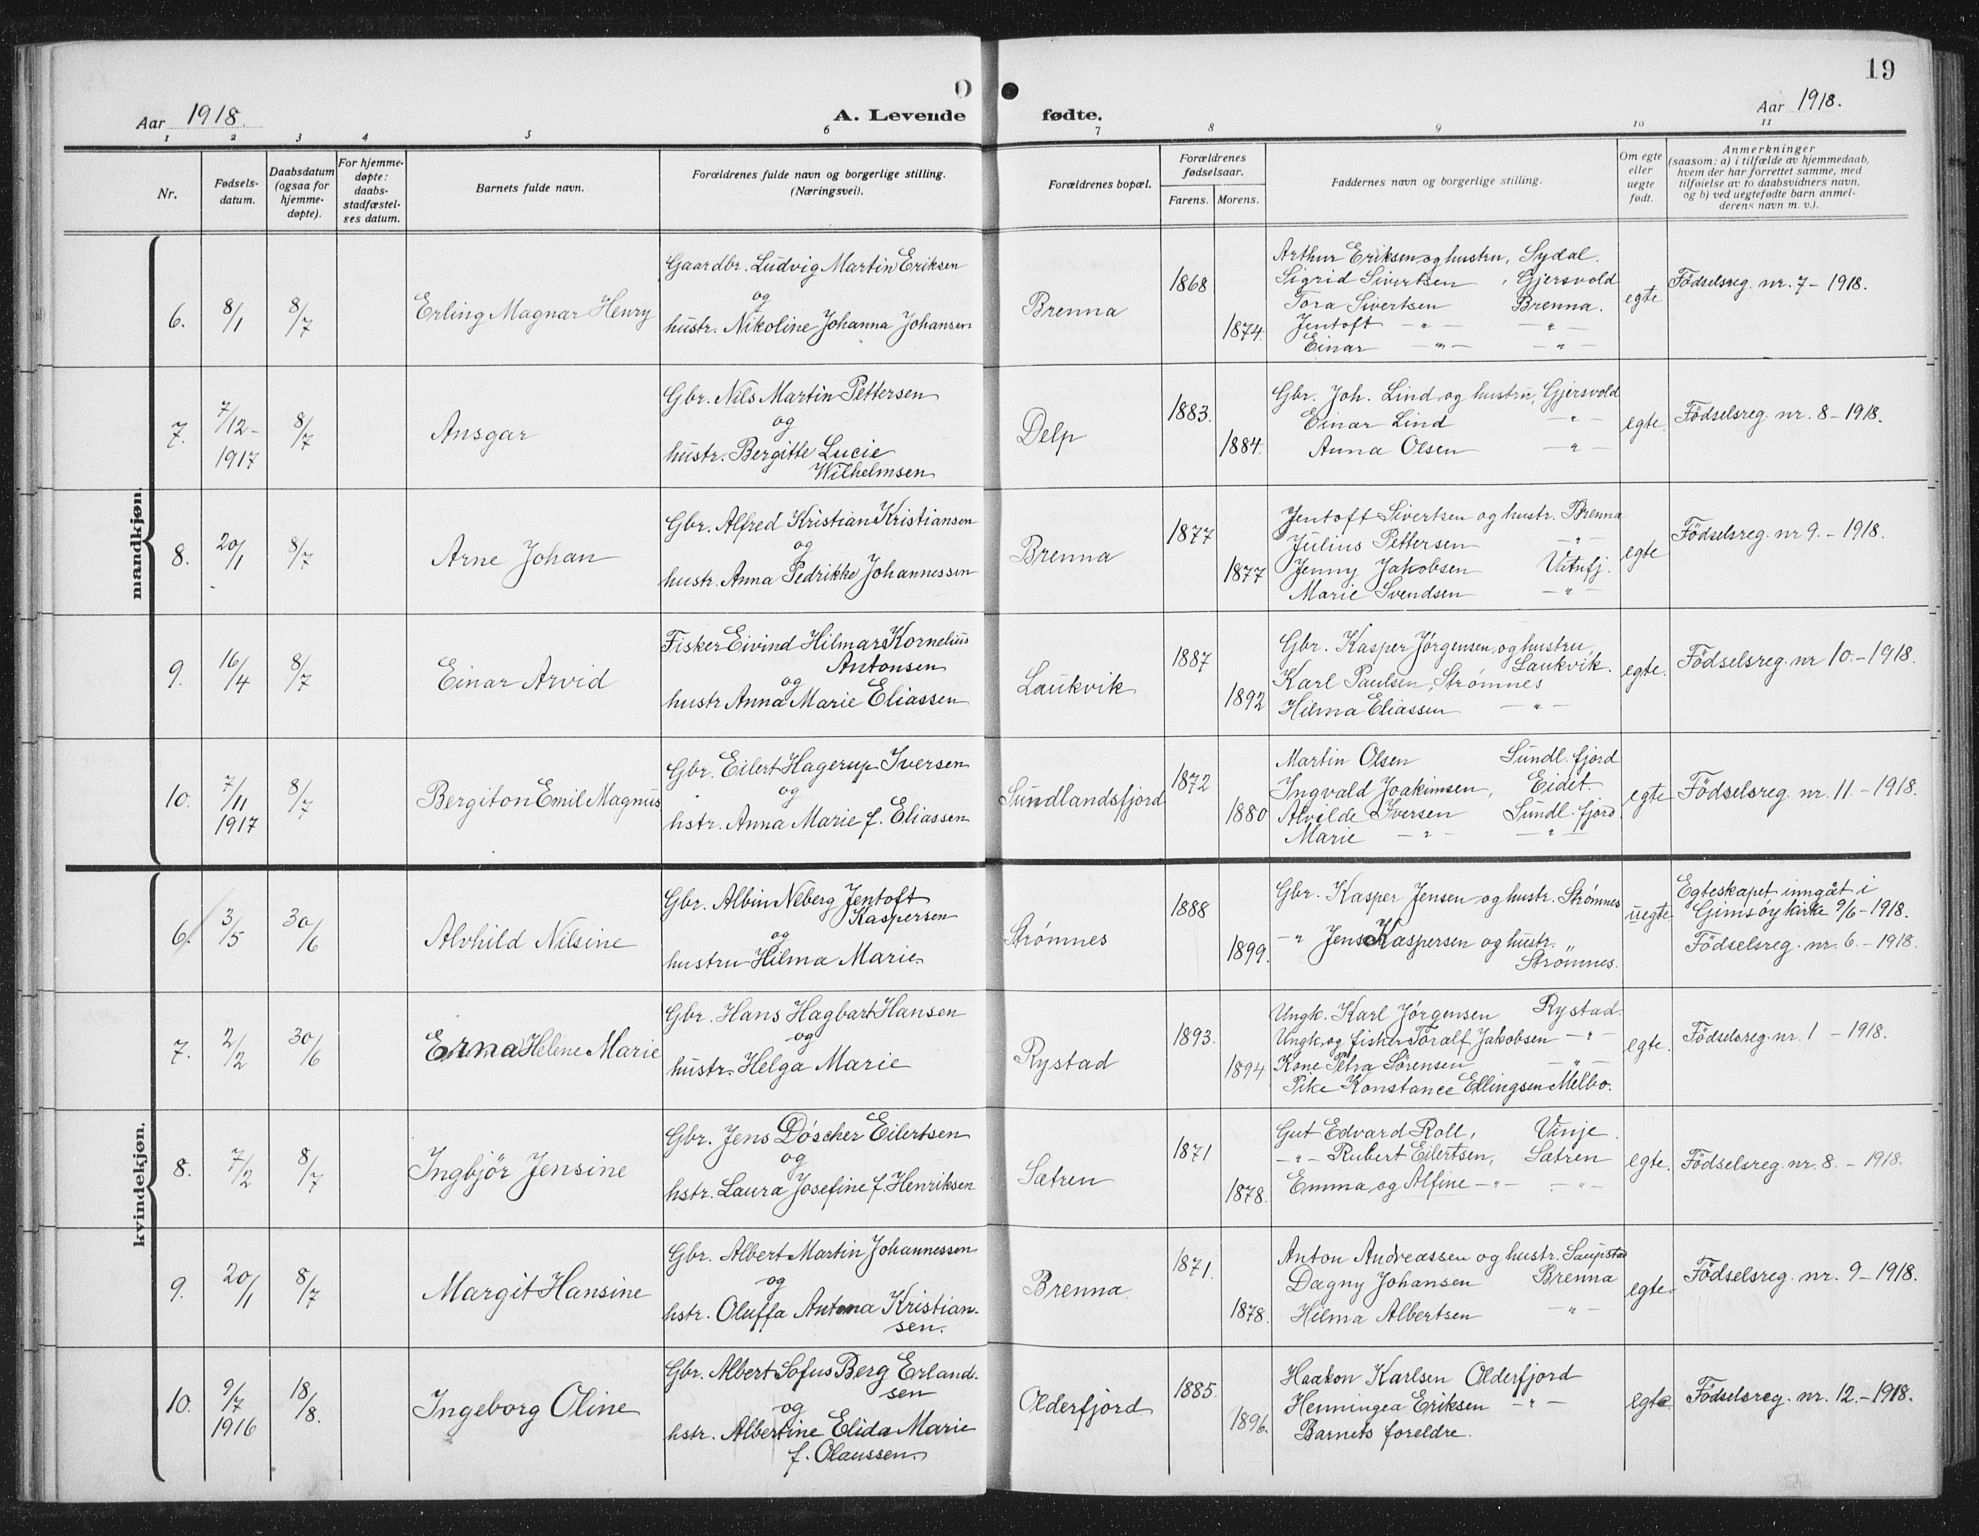 19
Aar 1918.
A. Levende
fødte.
Aar 1918.
1 2 3 4 5 6 7 8 9 10 11
Nr.
Fødsels-
datum.
Daabsdatum
(ogsaa for
hjemme-
døpte).
For hjemme-
døpte:
daabs-
stadfæstel-
ses datum.
Barnets fulde navn.
Forældrenes fulde navn og borgerlige stilling.
(Næringsvei).
Forældrenes bopæl.
Forældrenes
fødselsaar.
Farens. Morens.
Faddernes navn og borgerlige stilling.
Om egte
eller
uegte
født.
Anmerkninger
(saasom: a) i tilfælde av hjemmedaab,
hvem der har forrettet samme, med
tilføielse av to daabsvidners navn,
og b) ved uegtefødte barn anmel-
derens navn m. v.).
mandkjøn.
6.
8/1
8/7
Erling Magnar Henry
Gaardbr. Ludvig Martin Eriksen
og
hustr. Nikoline Johanna Johansen
Brenna
1868
1874.
Arthur Eriksen og hustru, Sydal.
Sigrid Sivertsen, Gjersvold
Tora Sivertsen Brenna.
Jentoft — " — — " —
Einar — " — — " —
egte
Fødselsreg. nr. 7 – 1918.
7.
7/12 -
1917
8/7
Ansgar
Gbr. Nils Martin Pettersen
og
hustr. Bergitte Lucie
Wilhelmsen
Delp
1883.
1884.
Gbr. Joh. Lind og hustru, Gjersvold
Einar Lind — " —
Anna Olsen — " —
egte.
Fødselsreg. nr. 8 – 1918.
8.
20/1
8/7
Arne Johan
Gbr. Alfred Kristian Kristiansen
og
hustr. Anna Pedrikke Johannessen
Brenna
1877
1877
Jentoft Sivertsen og hustr. Brenna
Julius Pettersen — " —
Jenny Jakobsen Vatnfj.
Marie Svendsen — " —
egte
Fødselsreg. nr 9. – 1918.
9.
16/4
8/7
Einar Arvid
Fisker Eivind Hilmar Kornelius
Antonsen
og
hustr Anna Marie Eliassen
Laukvik
1887
1892
Gbr. Kasper Jørgensen og hustru,
Laukvik.
Karl Paulsen, Strømnes
Hilma Eliassen — " —
egte.
Fødselsreg. nr 10. – 1918.
10.
7/11
1917
8/7
Bergiton Emil Magnus
Gbr. Eilert Hagerup Iversen
og
hstr. Anna Marie f. Eliassen
Sundlandsfjord
1872
1880
Martin Olsen Sundl. fjord
Ingvald Joakimsen, Eidet.
Alvilde Iversen Sundl. fjord.
Marie — " — — " —
egte
Fødselsreg. nr. 11. – 1918.
kvindekjøn.
6.
3/5
30/6
Alvhild Nilsine
Gbr. Albin Neberg Jentoft
Kaspersen
og
hustru Hilma Marie.
Strømnes
1888
1899.
Gbr. Kasper Jensen og hustr. Strømnes
— " Jens Kaspersen og hustr. "
Strømnes.
uegte
Egteskapet inngåt i
Gimsøy kirke 9/6 – 1918.
Fødselsreg. nr. 6. – 1918.
7.
2/2
30/6
Erna Helene Marie
Gbr. Hans Hagbart Hansen
og
hustr. Helga Marie
Rystad
1893.
1894
Ungk. Karl Jørgensen Rystad.
Ungk. og fisker Toralf Jakobsen — " —
Kone Petra Sørensen — " —
Pike Konstance Ellingsen Melbo.
egte.
Fødselsreg. nr. 1 – 1918.
8.
7/2
8/7
Ingbjör Jensine
Gbr. Jens Döscher Eilertsen
og
hstr. Laura Josefine f. Henriksen
Sætren
1871
1878.
Gut Edvard Roll, Vinje.
— " — Rubert Eilertsen, Sætren
Emma og Alfine — " — — " —
egte.
Fødselsreg. nr. 8. – 1918.
9.
20/1
8/7
Margit Hansine
Gbr. Albert Martin Johannessen
og
hstr. Oluffa Antona Kristian-
sen.
Brenna.
1871.
1878.
Anton Andreassen og hustr. Saupstad
Dagny Johansen Brenna
Hilma Albertsen — " —
egte.
Fødselsreg. nr. 9 – 1918.
10.
9/7
1916
18/8.
Ingeborg Oline
Gbr. Albert Sofus Berg Erland-
sen
og
hstr. Albertine Elida Marie
f. Olaussen.
Olderfjord
1885.
1896.
Haakon Karlsen Olderfjord
Henningea Eriksen — " —
Barnets foreldre.
egte
Fødselsreg. nr. 12. – 1918.